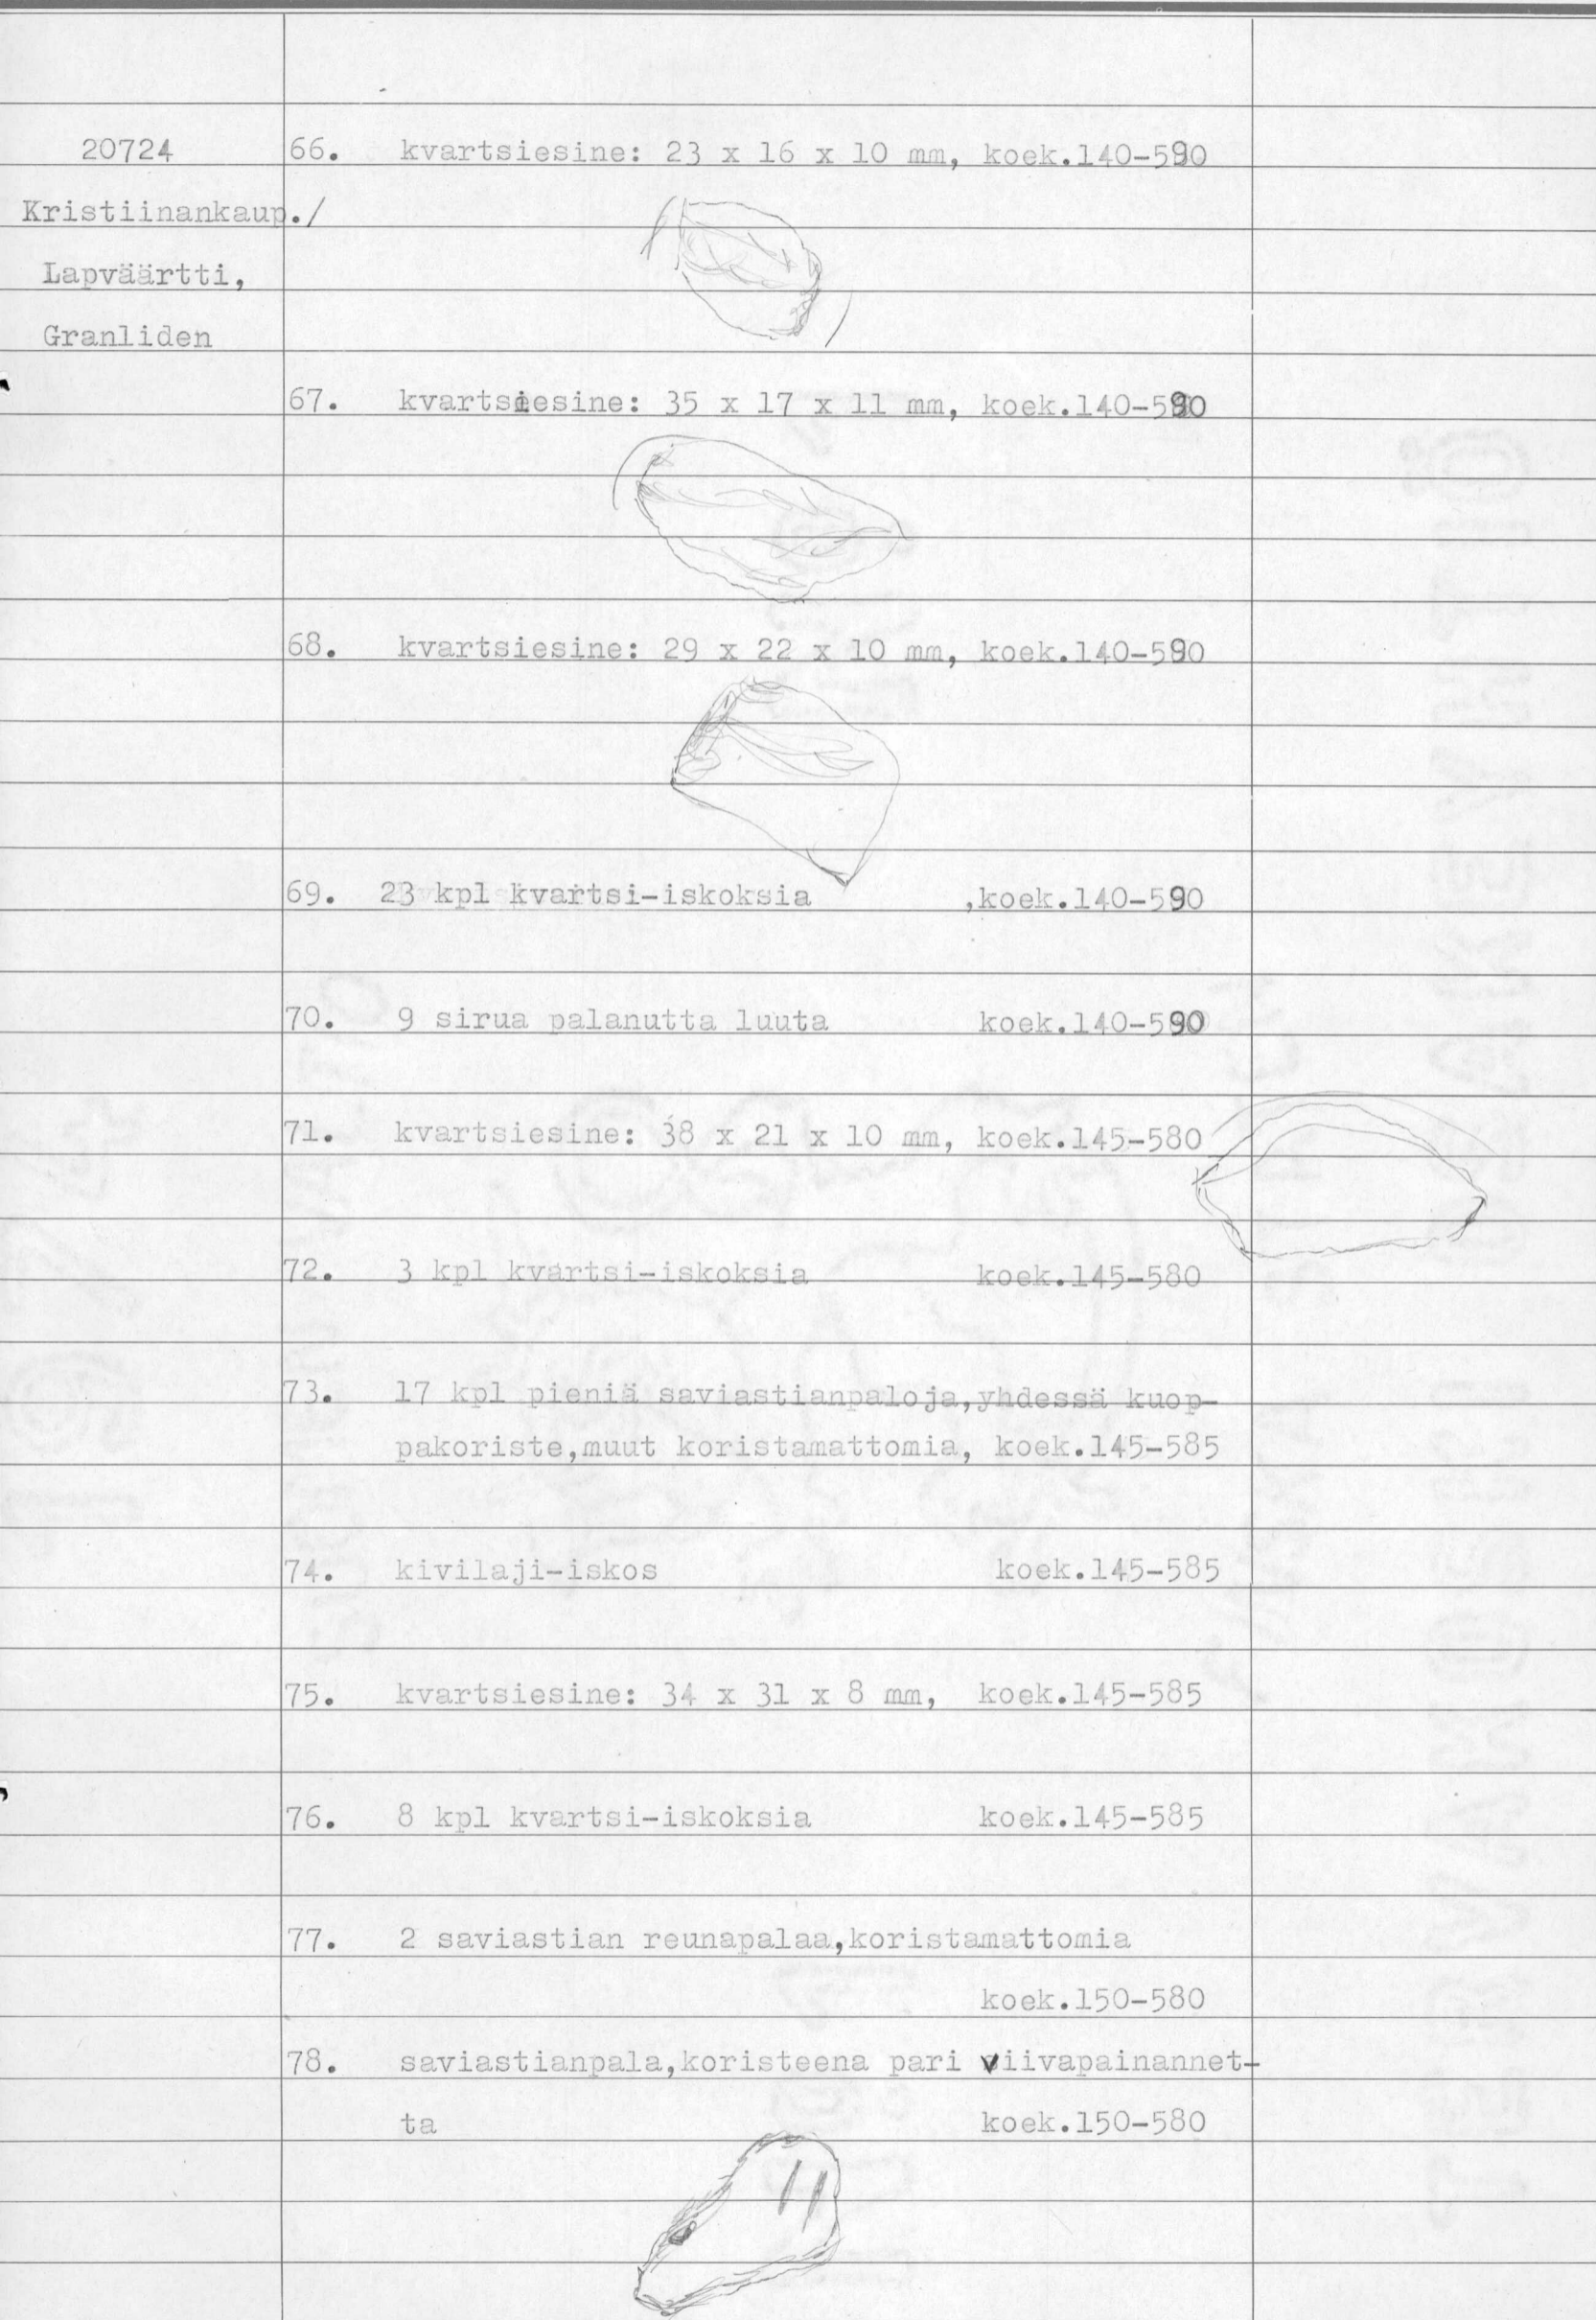 20724
66. kvartsiesine: 23 x 16 x 10 mm, koek.140-590
Kristiinankaup./
Lapväärtti,
Granliden
67. kvartsiesine: 35 x 17 x 11 mm, koek.140-590
68. kvartsiesine: 29 x 22 x 10 mm, koek.140-590
69. 23 kpl kvartsi-iskoksia ,koek.140-590
70. 9 sirua palanutta luuta koek.140-590
71. kvartsiesine: 38 x 21 x 10 mm, koek.145-580
72. 3 kpl kvartsi-iskoksia koek.145-580
73. 17 kpl pieniä saviastianpaloja,yhdessä kuop-
pakoriste,muut koristamattomia, koek.145-585
74. kivilaji-iskos koek.145-585
75. kvartsiesine: 34 x 31 x 8 mm, koek.145-585
76. 8 kpl kvartsi-iskoksia koek.145-585
77. 2 saviastian reunapalaa,koristamattomia
koek.150-580
78. saviastianpala,koristeena pari viivapainannet-
ta koek.150-580